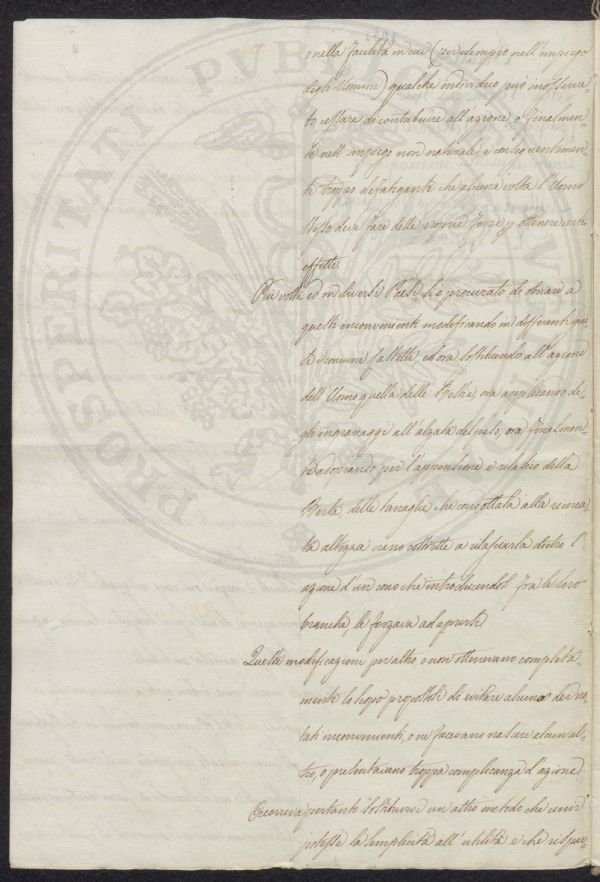 o nella facilità in cui (per esempio nell'impiego
degli Uomini) qualche individuo può inosserva-
to cessare di contribuire all'azione, o finalmen-
te nell'impiego non naturale, e conseguentemen-
te troppo defatigante che alcuna volta l'Uomo
stesso deve fare delle proprie forze p ottenere certi
effetti.
Più volte ed in diversi Paesi si è procurato di ovviare a
questi inconvenienti modificando in differenti gui-
se i comuni Castelli, ed ora sostituendo all'azione
dell'Uomo quella delle Bestie, ora applicando de-
gli ingranaggi all'alzata del peso, ora finalmen-
te adoprando per l'apprensione e rilascio della
Berta, delle tanaglie che condottala alla ricerca-
ta altezza erano costrette a rilasciarla dietro l'
azione d'un cono che introducendosi fra le loro
branche, le forzava ad aprirsi.
Queste modificazioni per altro, o non ottenevano completa-
mente lo scopo propostosi di evitare alcuno dei no-
tati inconvenienti, o ne facevano nascere alcun al-
tro, o presentavano troppa complicanza d'azione.
Occorreva pertanto sostituirvi un altro metodo che unir
potesse la semplicità all'utilità e che rispar-
PROSPERITATI PVB